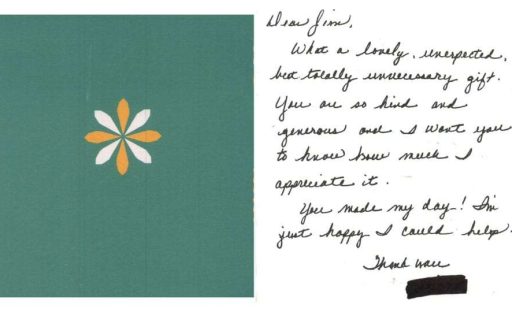 Dear Jim,
What a lovely, unexpected,
but totally unnecessary gift.
You are so kind and
generous and I want you
to know how much I
appreciate it.
You made my day! I'm
just happy I could help.
Thank you